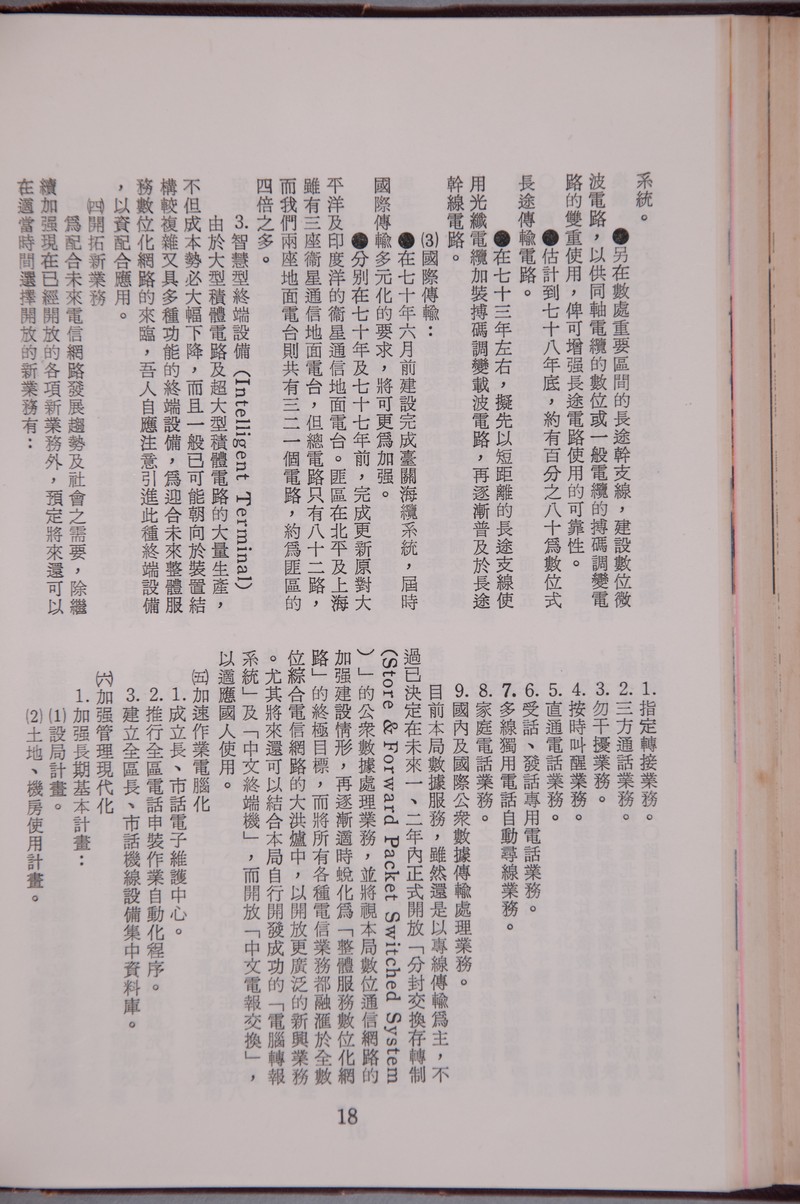 系統。
●另在數處重要區間的長途幹支線，建設數位微
波電路，以供同軸電纜的數位或一般電纜的搏碼調變電
路的雙重使用，俾可增强長途電路使用的可靠性。
●估計到七十八年底，約有百分之八十爲數位式
長途傳輸電路。
●在七十三年左右，擬先以短距離的長途支線使
用光纖電纜加裝搏碼調變載波電路，再逐漸普及於長途
幹線電路。
⑶國際傳輸：
●在七十年六月前建設完成臺關海纜系統，屆時
國際傳輸多元化的要求，將可更爲加强。
●分別在七十年及七十七年前，完成更新原對大
平洋及印度洋的衞星通信地面電台。匪區在北平及上海
雖有三座衞星通信地面電台，但總電路只有八十二路，
而我們兩座地面電台則共有三二一個電路，約爲匪區的
四倍之多。
3.智慧型終端設備（Intelligent Terminal）
由於大型積體電路及超大型積體電路的大量生產，
不但成本勢必大幅下降，而且一般已可能朝向於裝置結
構較複雜又具多種功能的終端設備，爲迎合未來整體服
務數位化網路的來臨，吾人自應注意引進此種終端設備
，以資配合應用。
㈣開拓新業務
爲配合未來電信網路發展趨勢及社會之需要，除繼
續加强現在已經開放的各項新業務外，預定將來還可以
在適當時間選擇開放的新業務有：
1.指定轉接業務。
2.三方通話業務。
3.勿干擾業務。
4.按時叫醒業務。
5.直通電話業務。
6.受話、發話專用電話業務。
7.多線獨用電話自動尋線業務。
8.家庭電話業務。
9.國內及國際公衆數據傳輸處理業務。
目前本局數據服務，雖然還是以專線傳輸爲主，不
過已決定在未來一、二年內正式開放「分封交換存轉制
（Store & Forward Packet Switched System
）」的公衆數據處理業務，並將視本局數位通信網路的
加强建設情形，再逐漸適時蛻化爲「整體服務數位化網
路」的終極目標，而將所有各種電信業務都融滙於全數
位綜合電信網路的大洪爐中，以開放更廣泛的新興業務
。尤其將來還可以結合本局自行開發成功的「電腦轉報
系統」及「中文終端機」，而開放「中文電報交換」，
以適應國人使用。
㈤加速作業電腦化
1.成立長、市話電子維護中心。
2.推行全區電話申裝作業自動化程序。
3.建立全區長、市話機線設備集中資料庫。
㈥加强管理現代化
1.加强長期基本計畫：
⑴設局計畫。
⑵土地、機房使用計畫。
18